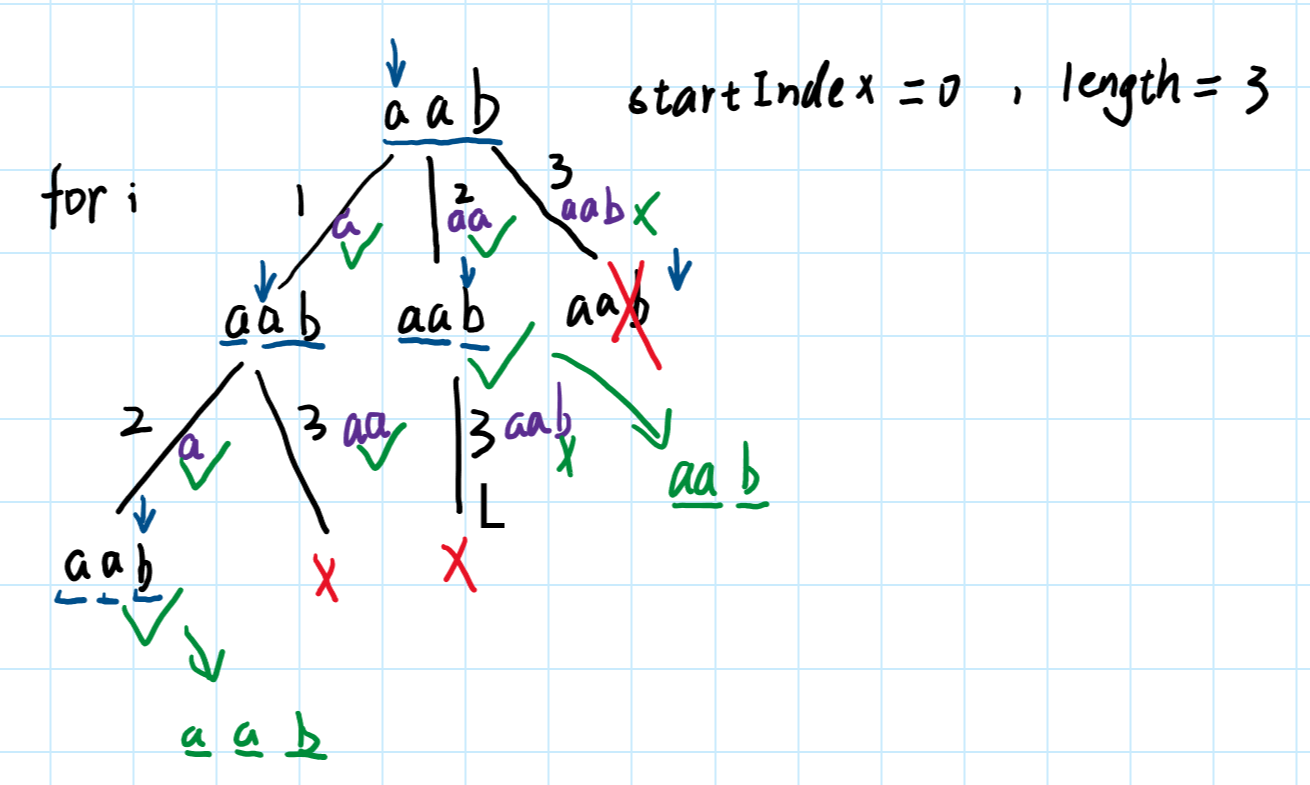 a a b startIndex = 0 , length = 3
for i 1 2 3
a aa aab x
a a b aab aab
2 a 3 aa 3 aab x
aa b
L
a a b x x
a a b